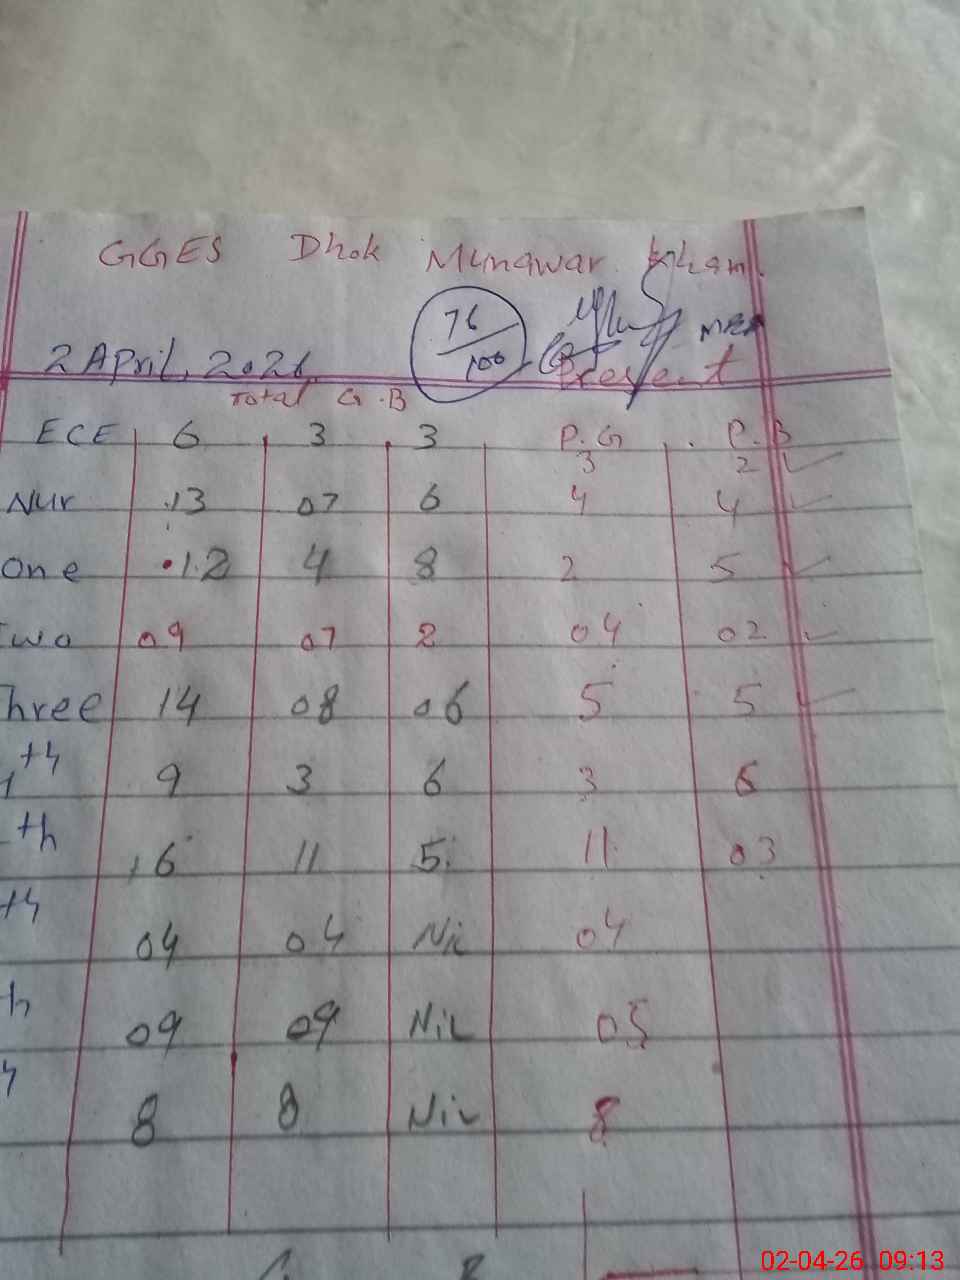 GGES Dhok Munawar Khan
76/100
2 April, 2026 MEA Present
Total G.B
ECE 6 3 3 P.G P.B
3 2
Nur 13 07 6 4 4
One 12 4 8 2 5
Two 09 07 2 04 02
Three 14 08 06 5 5
th 9 3 6 3 6
th 16 11 5 11 03
th 04 04 Nil 04
h 09 09 Nil 05
8 8 Nil 8
02-04-26 09:13